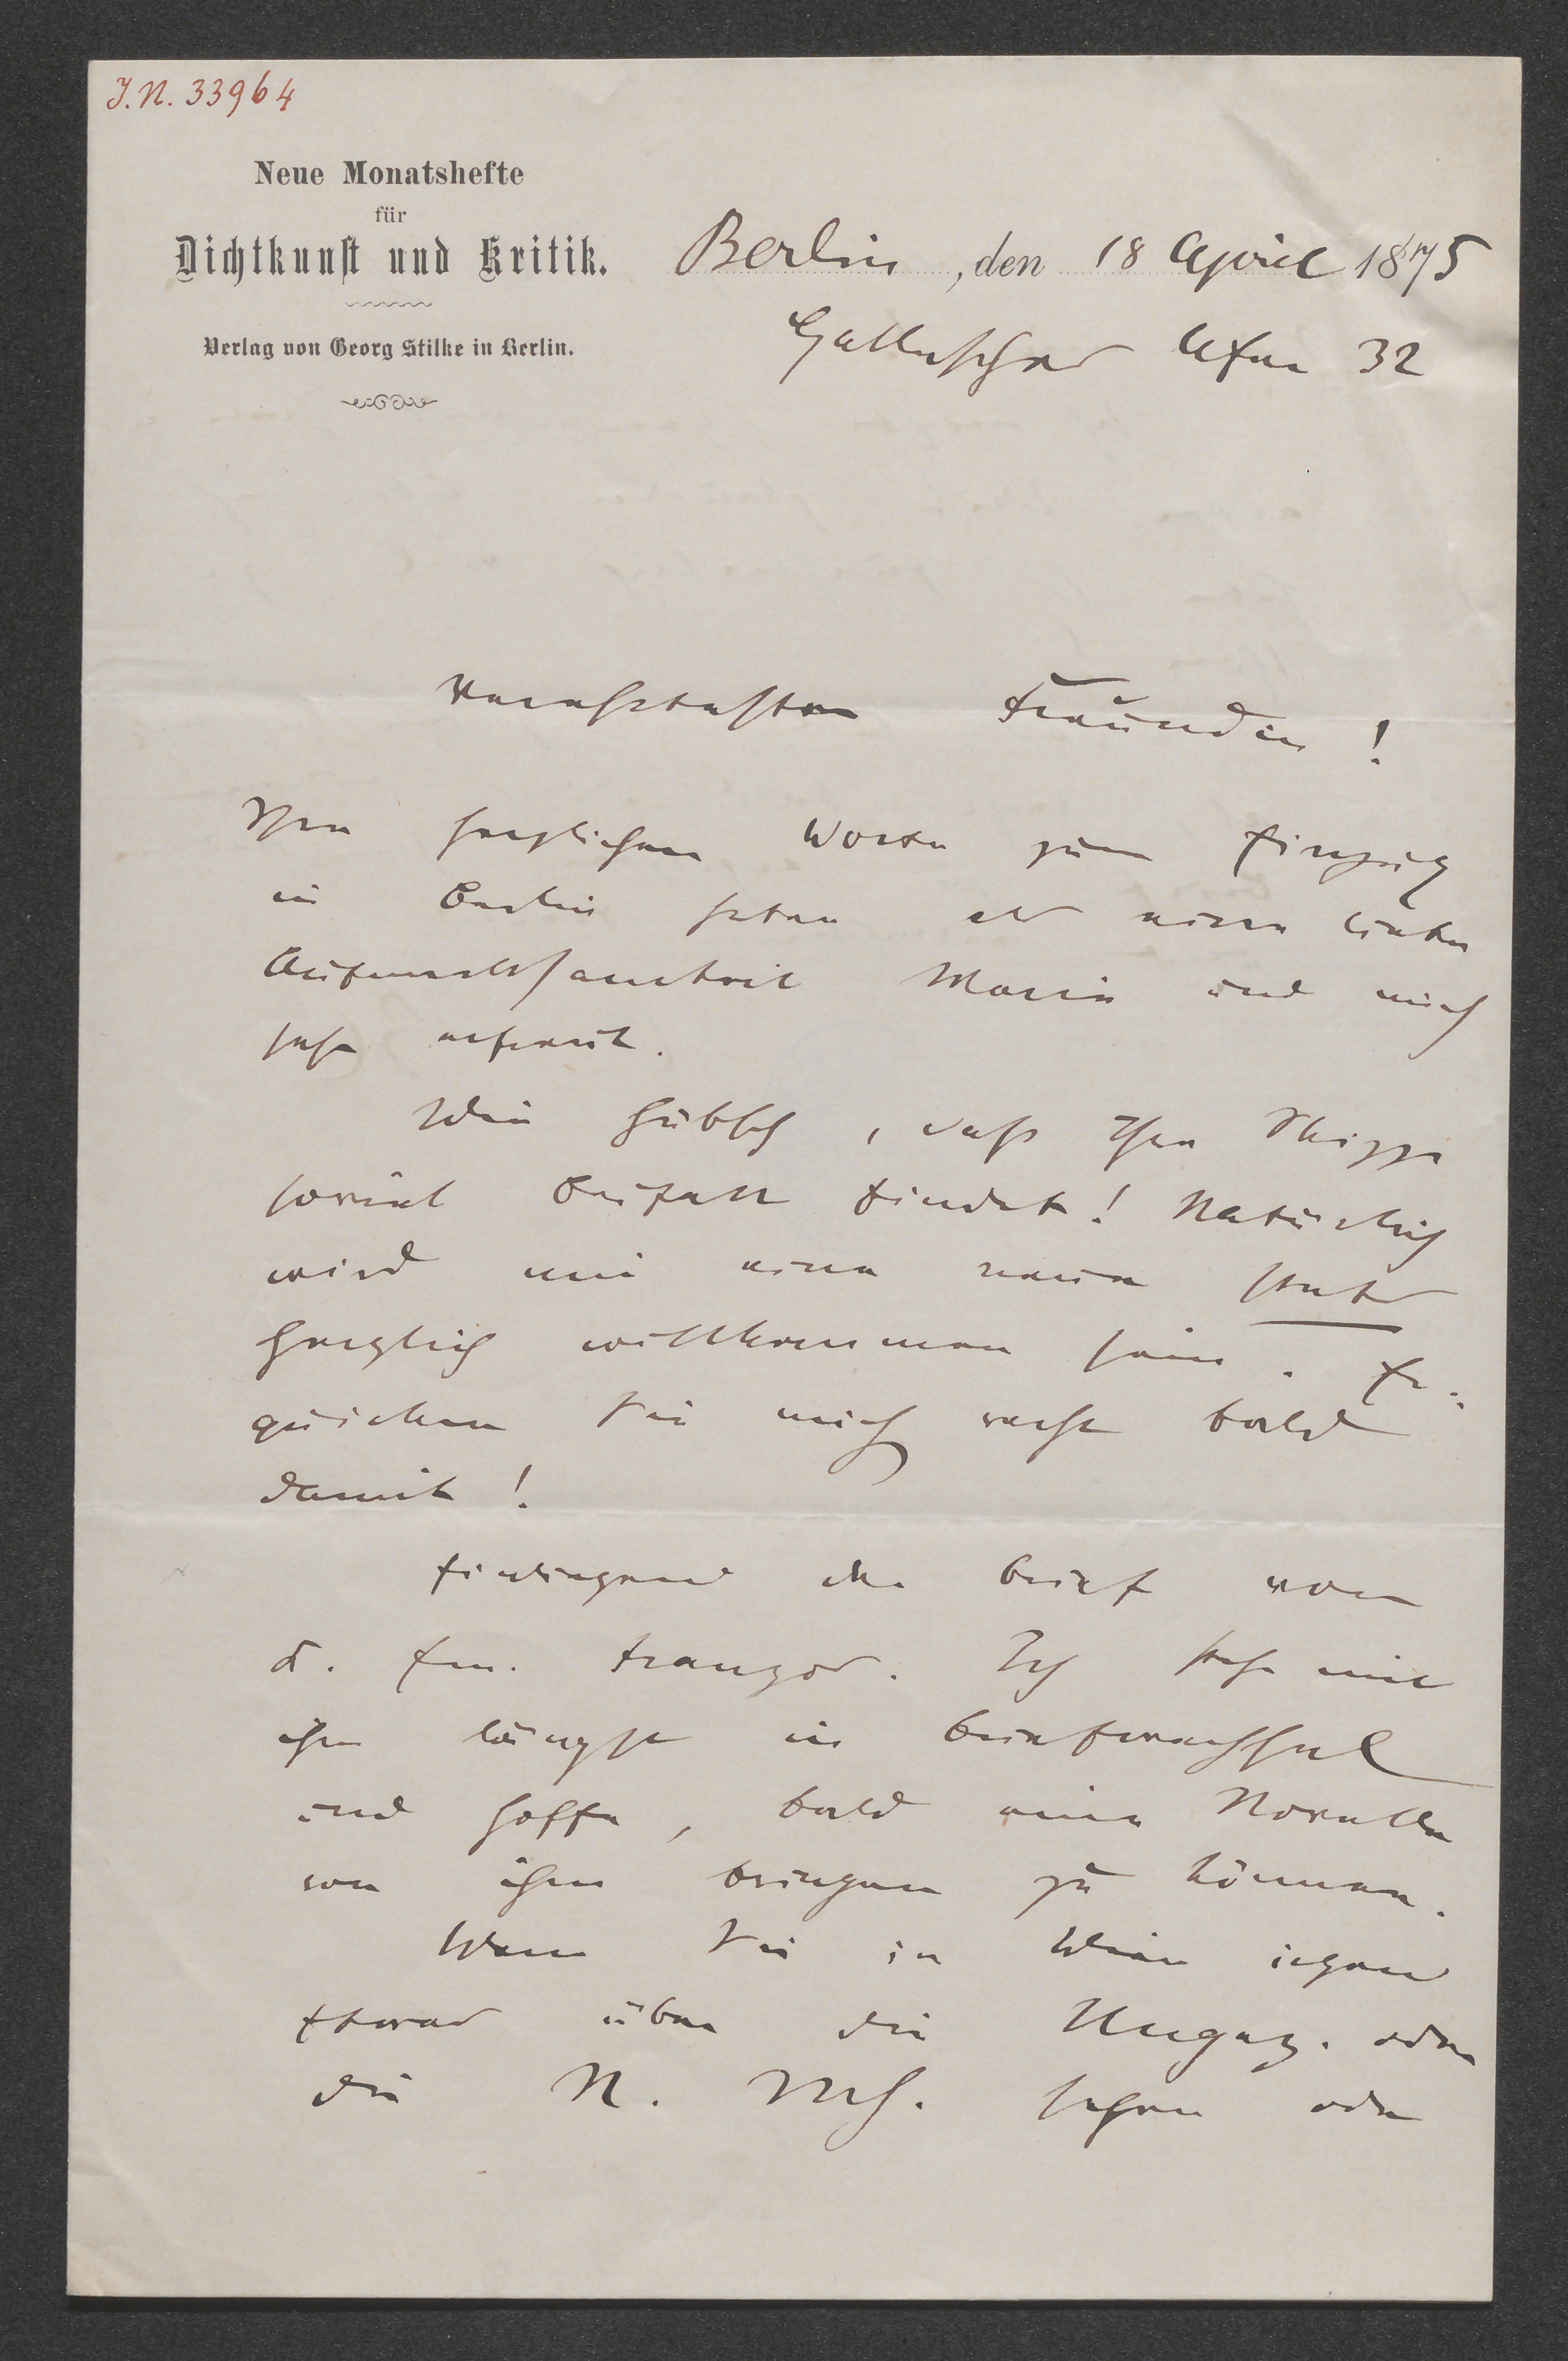 J.N. 33964
Neue Monatshefte
für
Dichtkunst und Kritik.
Verlag von Georg Stilke in Berlin.
Berlin, den 18 April 1875
Hallesches Ufer 32
Verehrteste Freundin!
Ihre herzlichen Worte zum Einzug
in Berlin haben als eine liebe
Aufmerksamkeit Maria und mich
sehr erfreut.
Wie hübsch, daß Ihre Skizze
soviel Beifall findet! Natürlich
wird mir eine neue stets
herzlich willkommen sein. Er-
quicken Sie mich recht bald
damit!
Einliegend der Brief von
K. Em. Franzos. Ich stehe mit
ihm längst in Briefwechsel
und hoffe, bald eine Novelle
von ihm bringen zu können.
Wenn Sie in Wien irgend
Etwas über die oder
die N. Mh. sehen oder